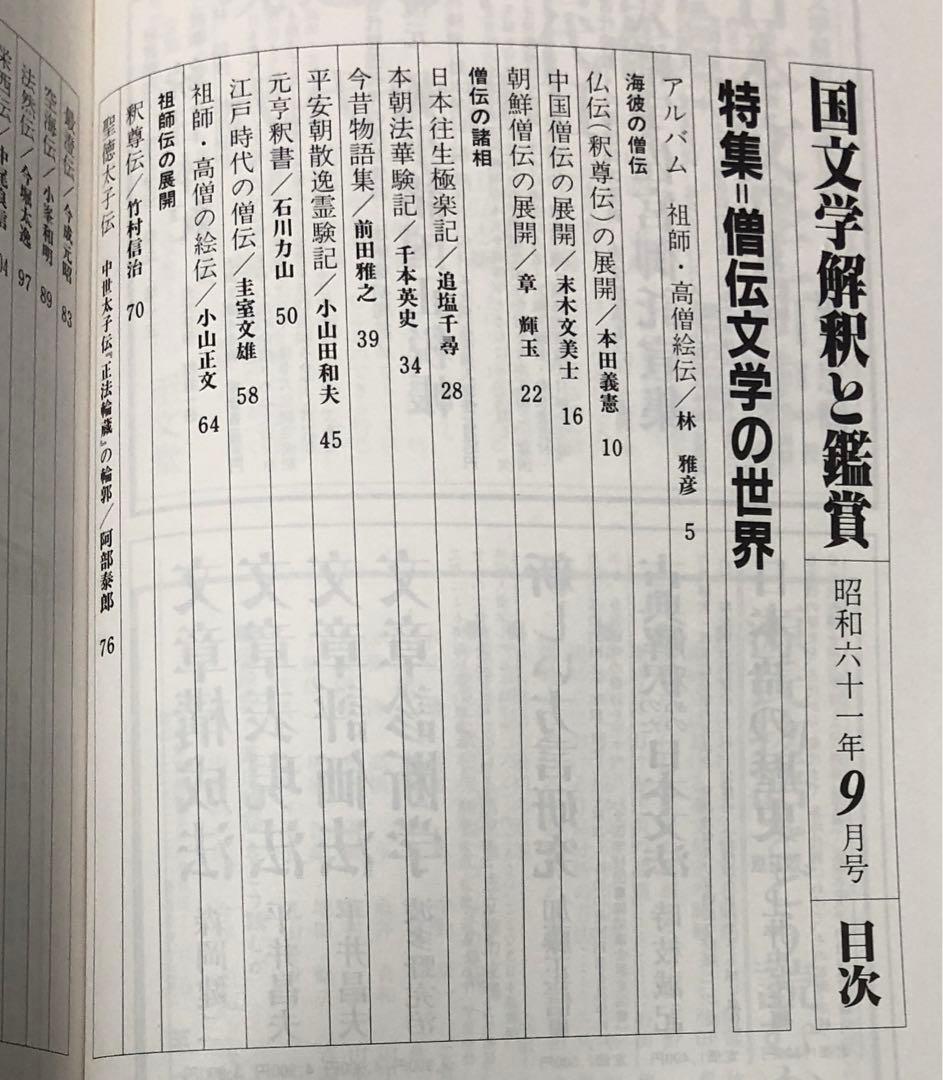 国文学解釈と鑑賞 昭和六十一年9月号 目次
特集=僧伝文学の世界
アルバム 祖師・高僧絵伝/林 雅彦 5
海彼の僧伝
仏伝(釈尊伝)の展開/本田義憲 10
中国僧伝の展開/末木文美士 16
朝鮮僧伝の展開/章 輝玉 22
僧伝の諸相
日本往生極楽記/追塩千尋 28
本朝法華験記/千本英史 34
今昔物語集/前田雅之 39
平安朝散逸霊験記/小山田和夫 45
元亨釈書/石川力山 50
江戸時代の僧伝/圭室文雄 58
祖師・高僧の絵伝/小山正文 64
祖師伝の展開
釈尊伝/竹村信治 70
聖徳太子伝 中世太子伝『正法輪蔵』の輪郭/阿部泰郎 76
最澄伝/今成元昭 83
空海伝/小峯和明 89
法然伝/今堀太逸 97
栄西伝/中尾良信